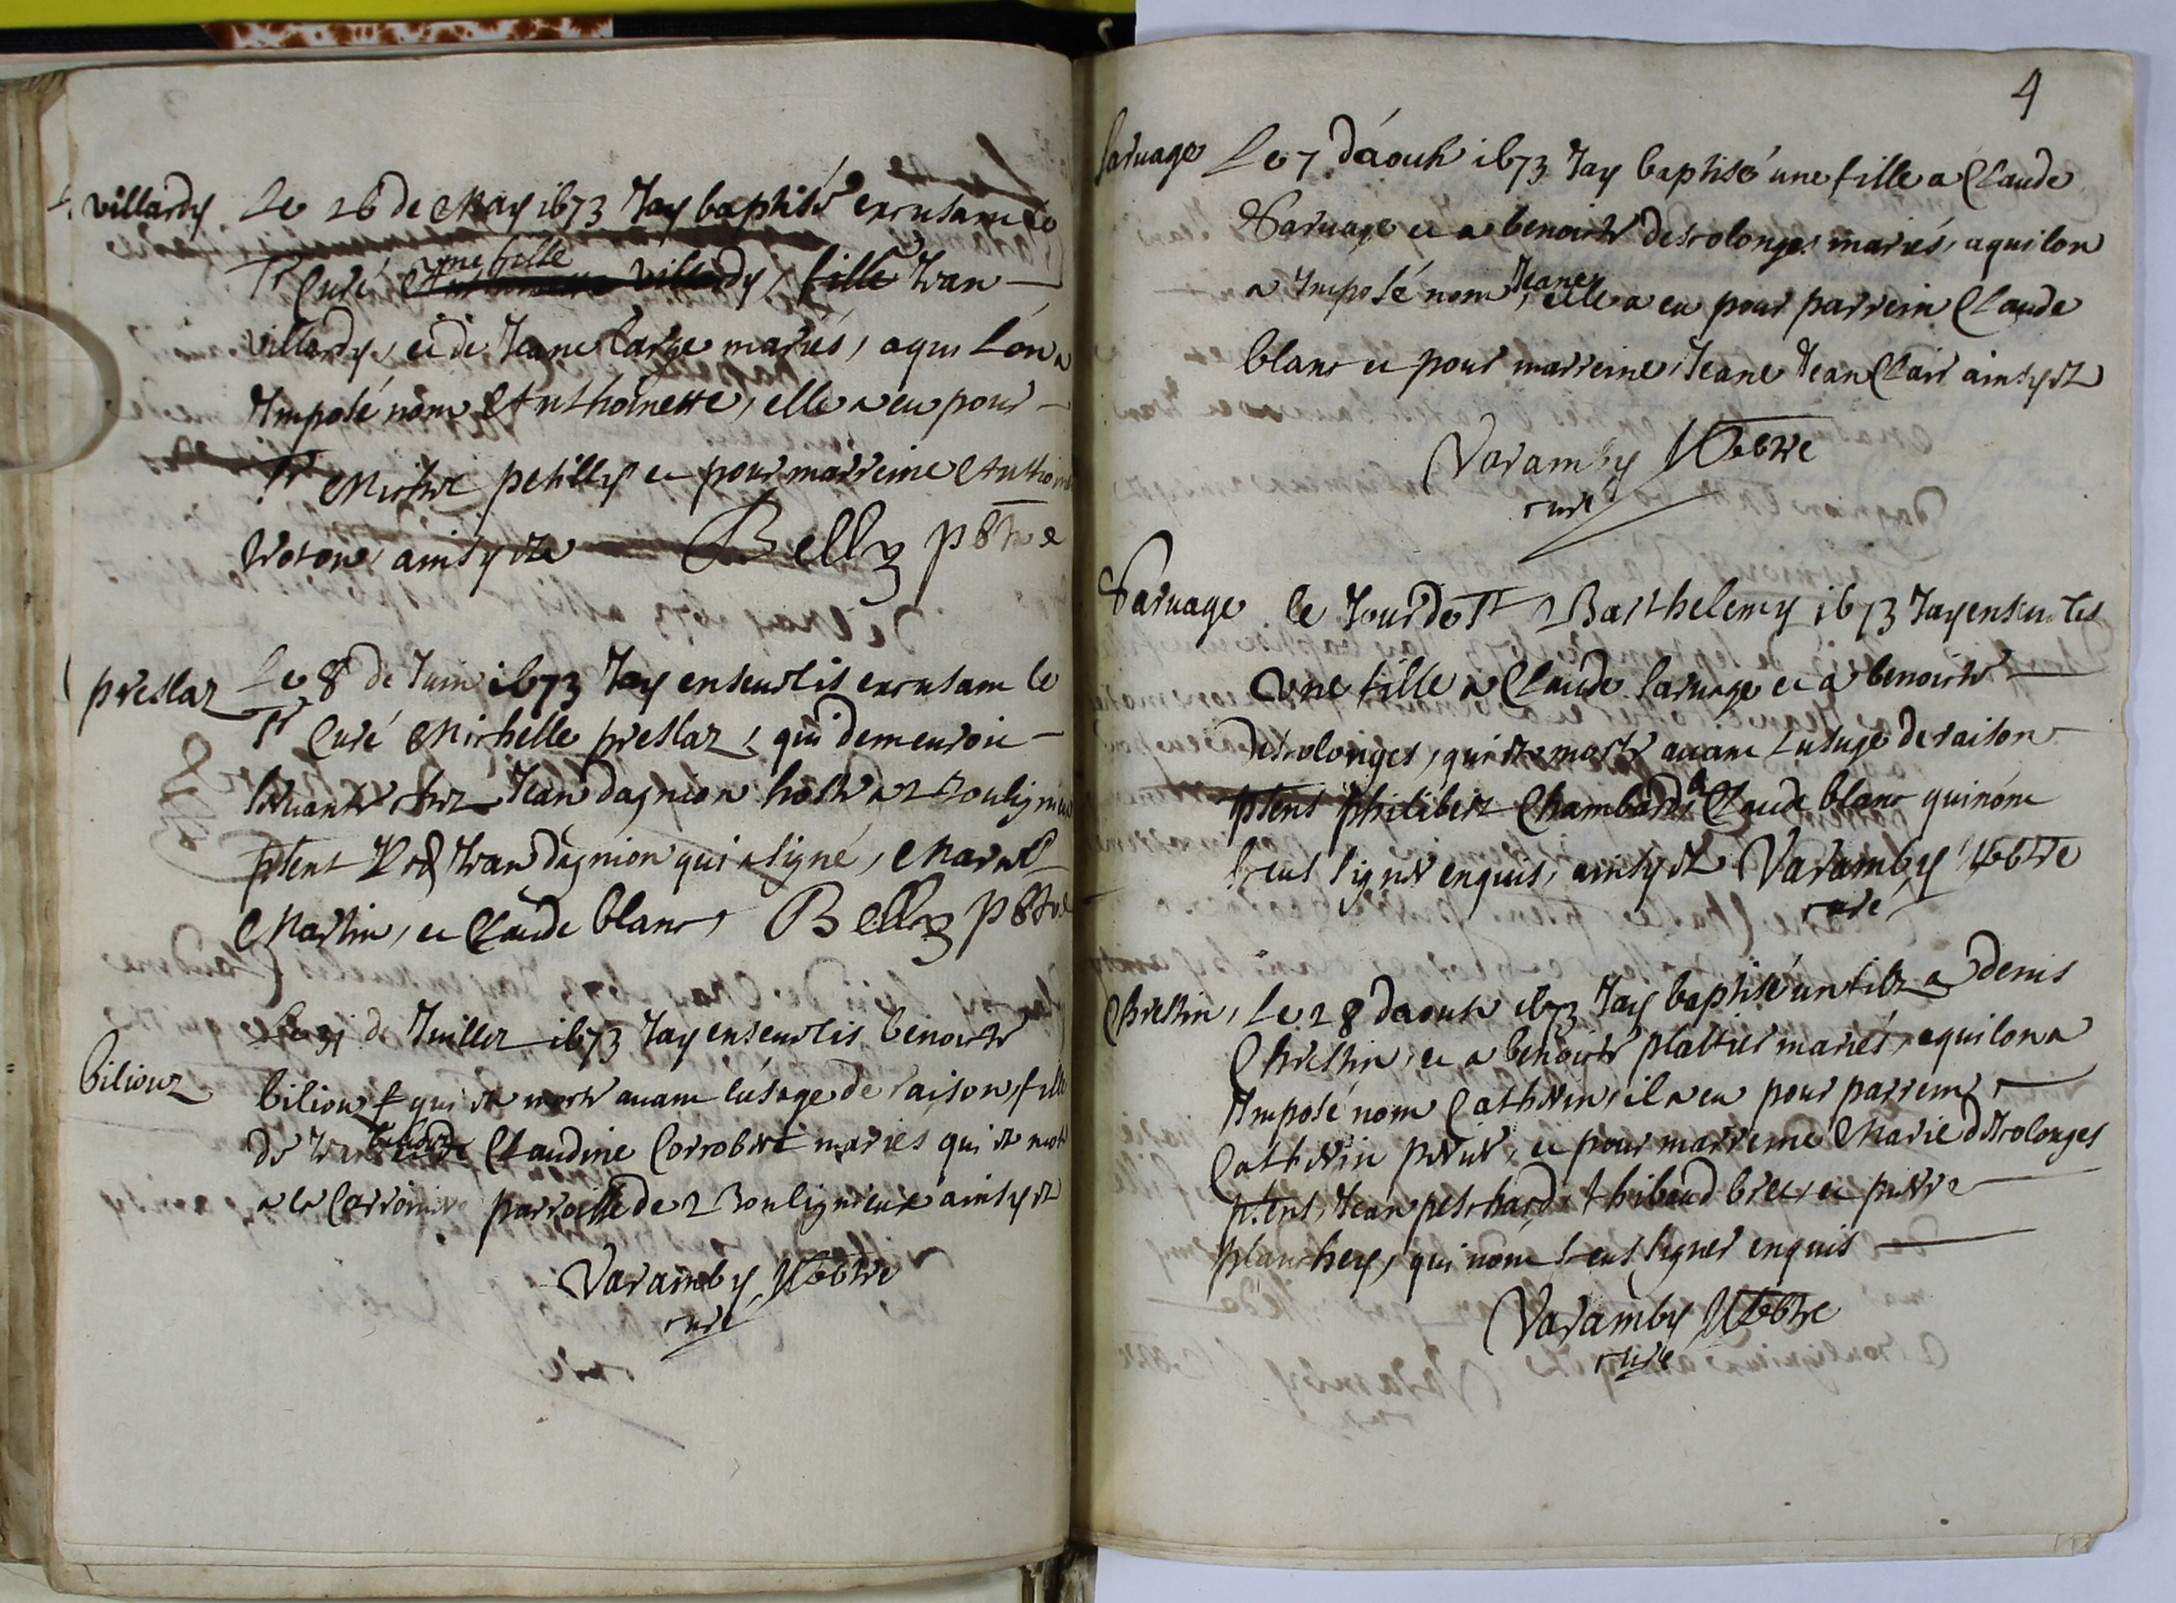 villardy Le 26 de May 1673 Jay baptisé excusant le
Sr Curé une fille villardy, fille Jean
villardy, et de Jeane large mariés, a qui lon a
Imposé nom Anthoinette, elle a eu pour
Sr petilly et pour marreine
ainsy est Belly pbtre
preslaz Le 8 de Juin 1673 Jay enseuelis excusant le
Sr Curé Michelle preslaz, qui demeuroit
seruante chez Jean dagnion hoste a Boulignieu
pnts Jean dagnion qui a signé,
Martin, et Claude blanc, Belly pbtre
Le 31 de Juillet 1673 Jay enseuelis benoiste
biliouz biliou qui est morte auant lúsage de raison, fille
de Claudine Corrobert mariés qui est morte
a la parroisse de Boulignieux ainsy est
Varamby pbtre
curé
4
Saruage Le 7 dáoust 1673 Jay baptisé une fille a Claude
Saruage et a benoiste descolonges mariés, a qui lon
a Imposé nom Jeane, elle a eu pour parrein Claude
blanc et pour marreine Jeane Jean Clair ainsy est
Varamby pbtre
curé
Saruage le Jour de St Barthelemy 1673 Jay enseuelis
une fille a Claude Saruage et a benoiste
descolonges, qui est morte auant lusage de raison
pnts philibert Chambard & Claude blanc qui nont
sceus signer enquis, ainsy est Varamby pbtre
curé
Chrestin, Le 28 daoust 1673 Jay baptisé un filz a denis
Chrestin, et a benoiste platier mariés, a qui lon a
Imposé nom Catherin, il a eu pour parrein
Catherin et pour marreine Marie descolonges
pnts, Jean peschard, thibaud et pierre
planchey, qui nont sceus signer enquis
Varamby pbtre
curé